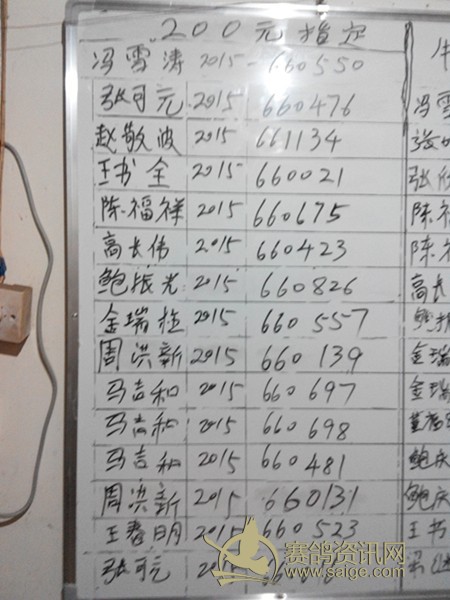 200元指定
冯雪涛 2015- 660550
张可元 2015 660476
赵敬波 2015 661134
王书全 2015 660021
陈福祥 2015 660675
高长伟 2015 660423
鲍振光 2015 660826
金瑞 2015 660557
周洪新 2015 660139
马吉和 2015 660697
马吉和 2015 660698
马吉和 2015 660481
周洪新 2015 660131
王春明 2015 660523
张可元
冯雪
陈福
陈福
高长
金瑞
金瑞
鲍庆
鲍庆
王书
赛鸽资讯网
www.saigc.com